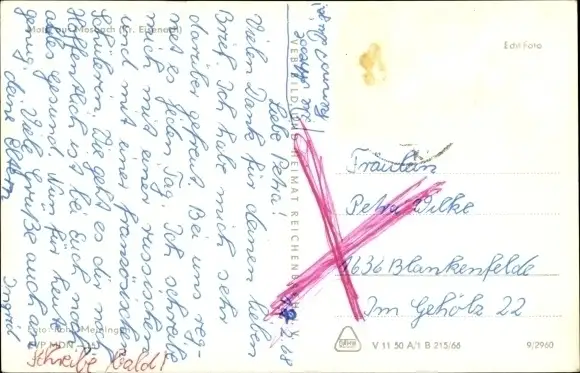 Motiv aus Mosbach (Kr. Eisenach)
Echt Foto
Liebe Petra!
Vielen Dank für deinen lieben
Brief. Ich habe mich sehr
darüber gefreut. Bei uns reg-
net es jeden Tag. Ich schreibe
mich mit einer russischen
und mit einer französischen
Schülerin. Wie geht es dir
Hoffentlich ist bei Euch noch
alles gesund. Nun für heute
genug. Viele Grüße auch an
deine Eltern
Ingrid
Schreibe bald!
VEB BILD UND HEIMAT REICHENBACH
Fräulein
Petra Wilke
1636 Blankenfelde
Im Gehölz 22
EVP MDN
V 11 50 A/1 B 215/66
9/2960